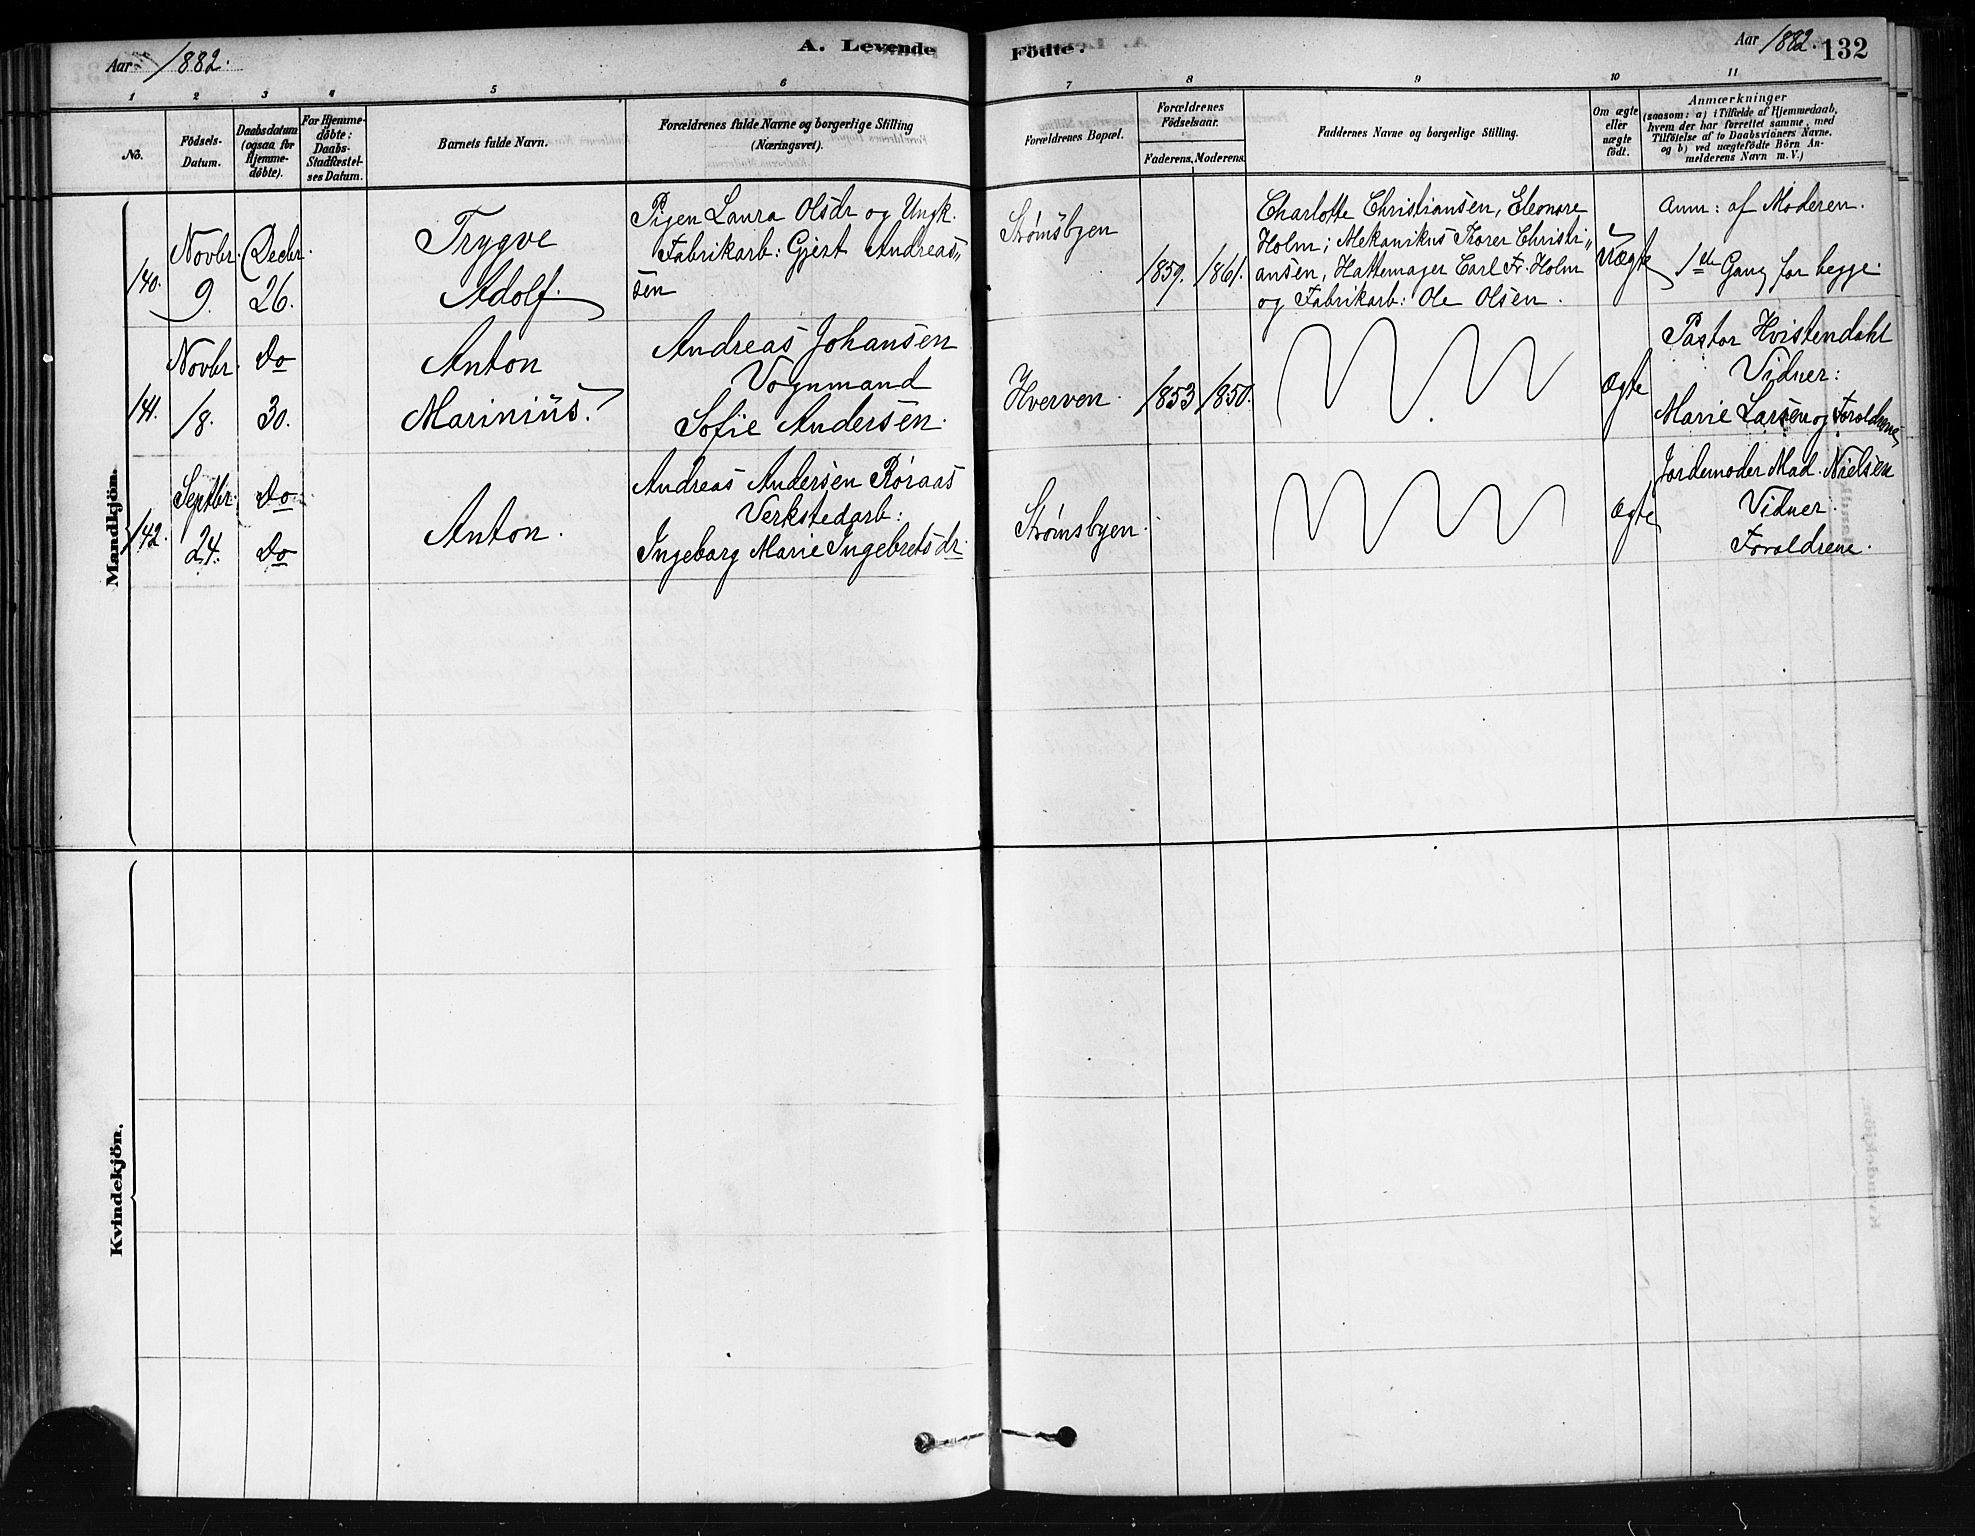 Aar 1882.
A. Levende
Födte.
Aar 1882.
132
1 2 3 4 5 6 7 8 9 10 11
No.
Födsels-
Datum.
Daabsdatum
(ogsaa for
Hjemme-
döbte).
For Hjemme-
döbte:
Daabs-
Stadfæstel-
ses Datum.
Barnets fulde Navn.
Forældrenes fulde Navne og borgerlige Stilling
(Næringsvei).
Forældrenes Bopæl.
Forældrenes
Födselsaar.
Faderens. Moderens.
Faddernes Navne og borgerlige Stilling.
Om ægte
eller
uægte
født.
Anmærkninger
(saasom: a) i Tilfælde af Hjemmedaab,
hvem der har forrettet samme, med
Tilföielse af to Daabsvidners Navne.
og b) ved uægtefödte Börn An-
melderens Navn m.V.)
Mandkjön.
140.
Novbr.
9.
Decbr.
26.
Trygve
Adolf.
Pigen Laura Olsdr og Ungk.
Fabrikarb: Gjert Andreas„
sen
Strømsbyen
1859. 1861.
Charlotte Christiansen, Eleonore
Holm; Mekanikus Thorer Christi„
ansen, Hattemager Carl Fr. Holm
og Fabrikarb: Ole Olsen.
uægte
Anm: af Moderen.
1ste Gang for begge.
141.
Novbr.
18.
Do
30.
Anton
Marinius.
Andreas Johansen
Vognmand
Sofie Andersen.
Hverven.
1853 1850.
ægte
Pastor Hvistendahl
Vidner:
Marie Larsen og Forældrene
142.
Septbr.
24.
Do
Do
Anton.
Andreas Andersen Røraas
Verkstedarb:
Ingeborg Marie Ingebretsdr.
Strømsbyen.
ægte
Jordemoder Mad. Nielsen
Vidner:
Forældrene.
Kvindekjön.